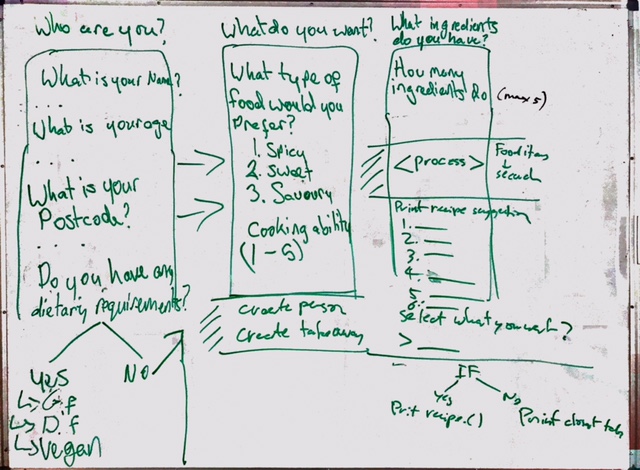 Who are you?
What is your Name?
....
What is your age
....
What is your
Postcode?
....
Do you have any
dietary requirements?
Yes
↳ G.f
↳ D.f
↳ Vegan
No
What do you want?
What type of
food would you
Prefer?
1. Spicy
2. Sweet
3. Savoury
Cooking ability
(1 - 5)
create person
Create takeaway
What ingredients
do you have?
How many
ingredients do
(max 5)
<process>
Food item
↓
search
Print recipe suggestion
1.
2.
3.
4.
5.
6.
Select what you want?
>
IF
Yes
Print recipe.()
No
Print closest